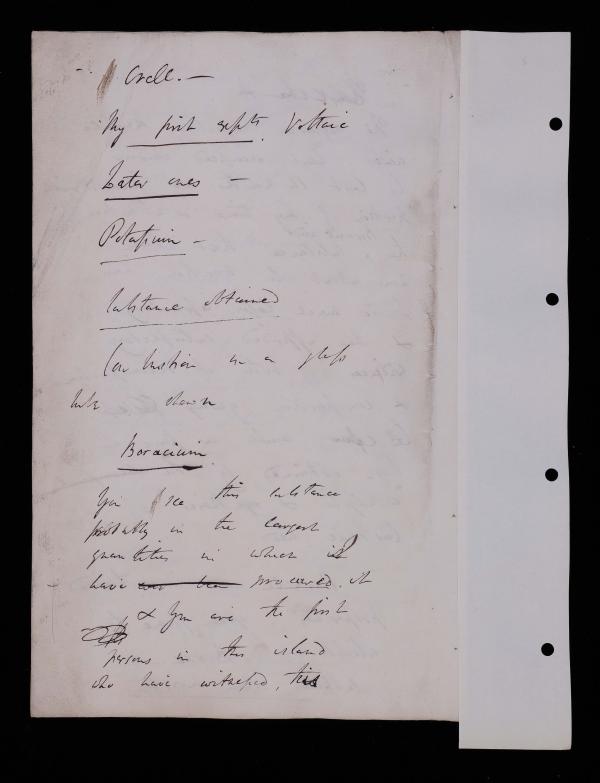 Crell. —
My first expts. Voltaic
Later ones —
Potassium —
Substance obtained
Combustion in a glass
tube shewn
Boracium
You see this substance
probably in the largest
quantities in which I
have ever been procured it
& You are the first
persons in this island
who have witnessed, this